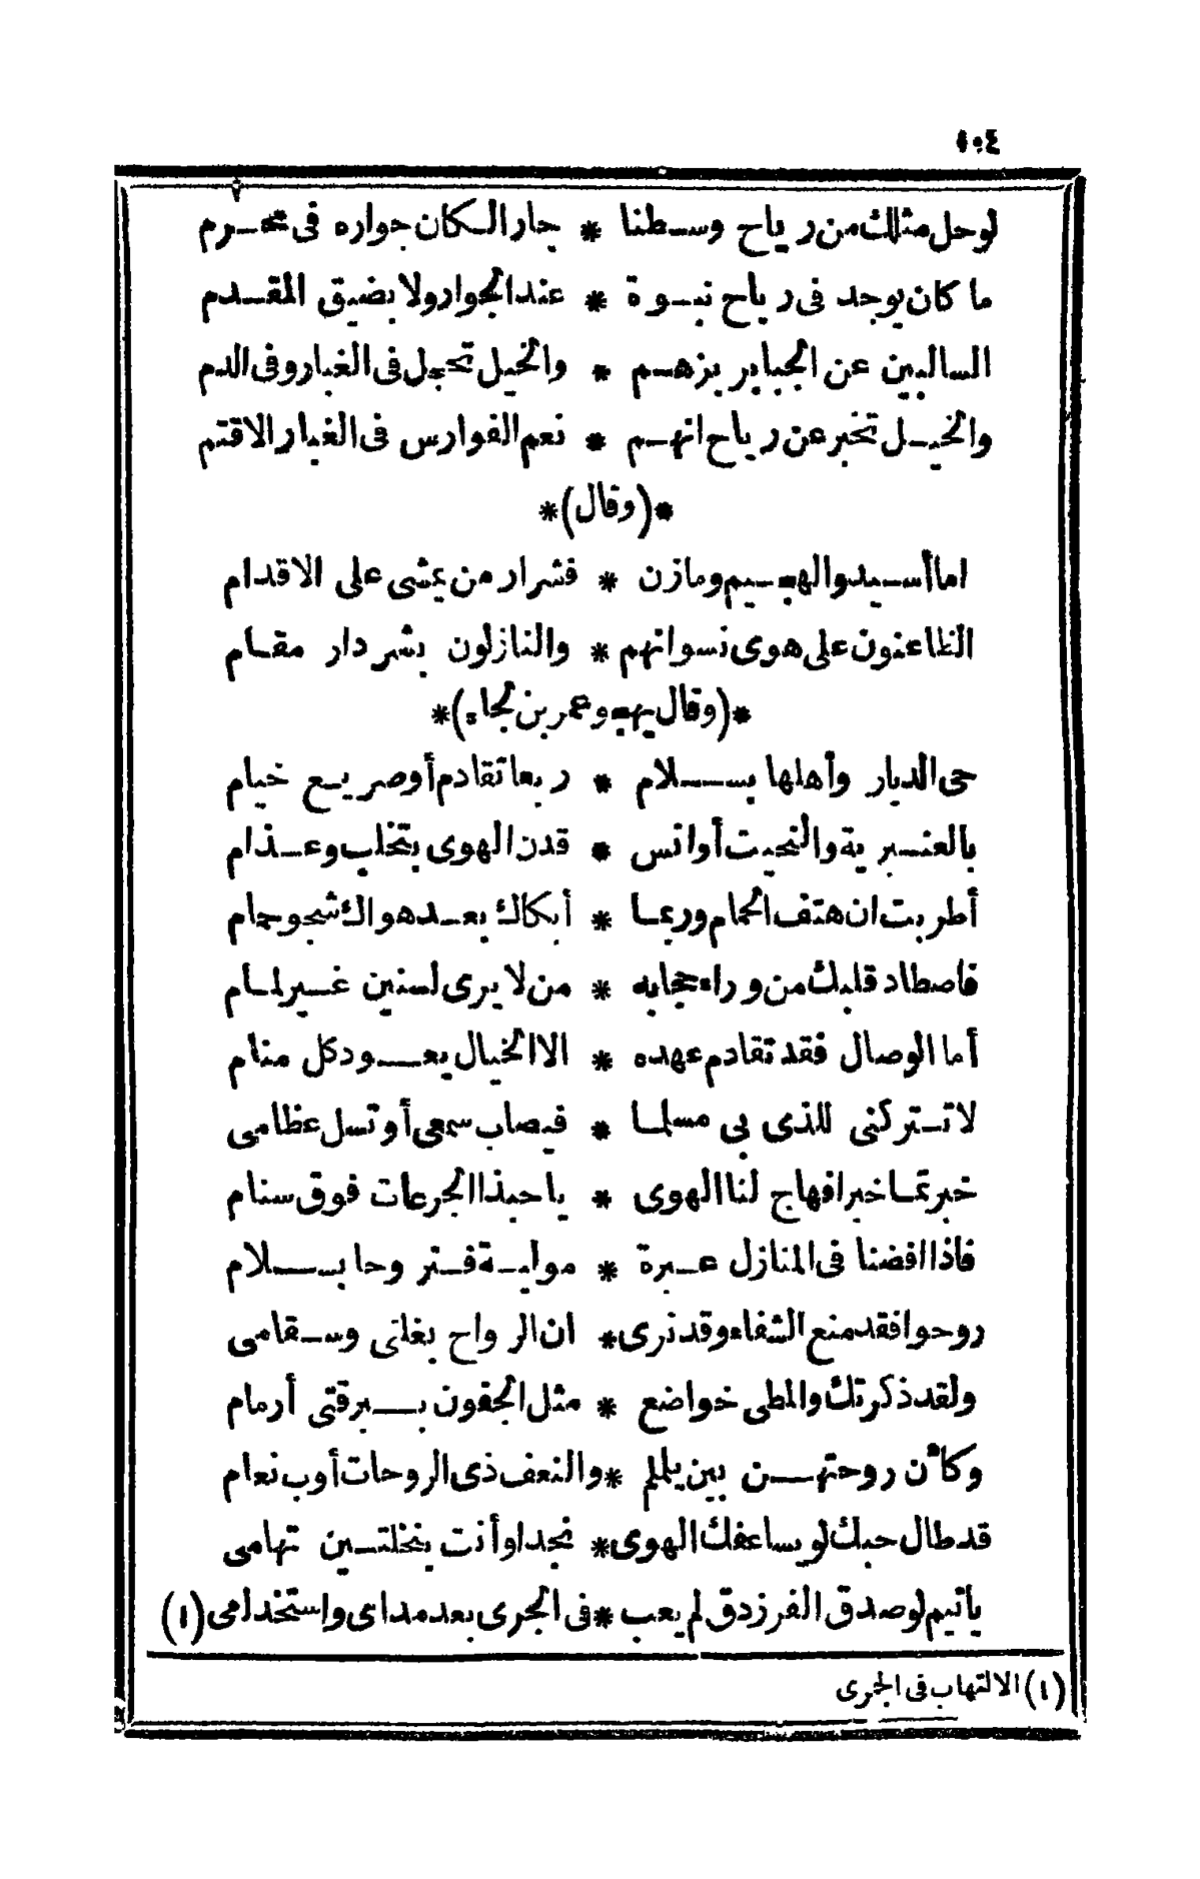 ١٠٤
لوحل مثلك من رياح وسطنا * جارا لكان جواره فى محرم
ما كان يوجد فى رياح نبوة * عند الجوار ولا بضيق المقدم
السالبين عن الجبابر بزهم * والخيل تحجل فى الغبار وفى الدم
والخيل تخبر عن رياح انهم * نعم الفوارس فى الغبار الاقتم
*(وقال)*
اما أسيد والهجيم ومازن * فشرار من يمشى على الاقدام
الظاعنون على هوى نسوانهم * والنازلون بشر دار مقام
*(وقال يهجو عمر بن لجاء)*
حى الديار وأهلها بسلام * ربعا تقادم أو صريع خيام
بالعنبرية والنحيت أوانس * قدن الهوى بتخلب وعذام
أطربت ان هتف الحمام وربما * أبكاك بعد هواك شجو حمام
فاصطاد قلبك من وراء حجابه * من لا يرى لسنين غير لمام
أما الوصال فقد تقادم عهده * الا الخيال يعود كل منام
لا تتركنى للذى بى مسلما * فيصاب سمعى أو تسل عظامى
خبرتما خبرا فهاج لنا الهوى * يا حبذا الجرعات فوق سنام
فاذا افضنا فى المنازل عبرة * مولية فتروحا بسلام
روحوا فقد منع الشفاء وقد نرى* ان الرواح بغلتى وسقامى
ولقد ذكرتك والمطى خواضع * مثل الجفون ببرقتى أرمام
وكأن روحتهن بين يلملم *والنعف ذى الروحات أوب نعام
قد طال حبك لو يساعفك الهوى* نجدا وأنت بنخلتين تهامى
يا تيم لو صدق الفرزدق لم يعب *فى الجرى بعد مداى واستخدامى(١)
(١) الالتهاب فى الجرى